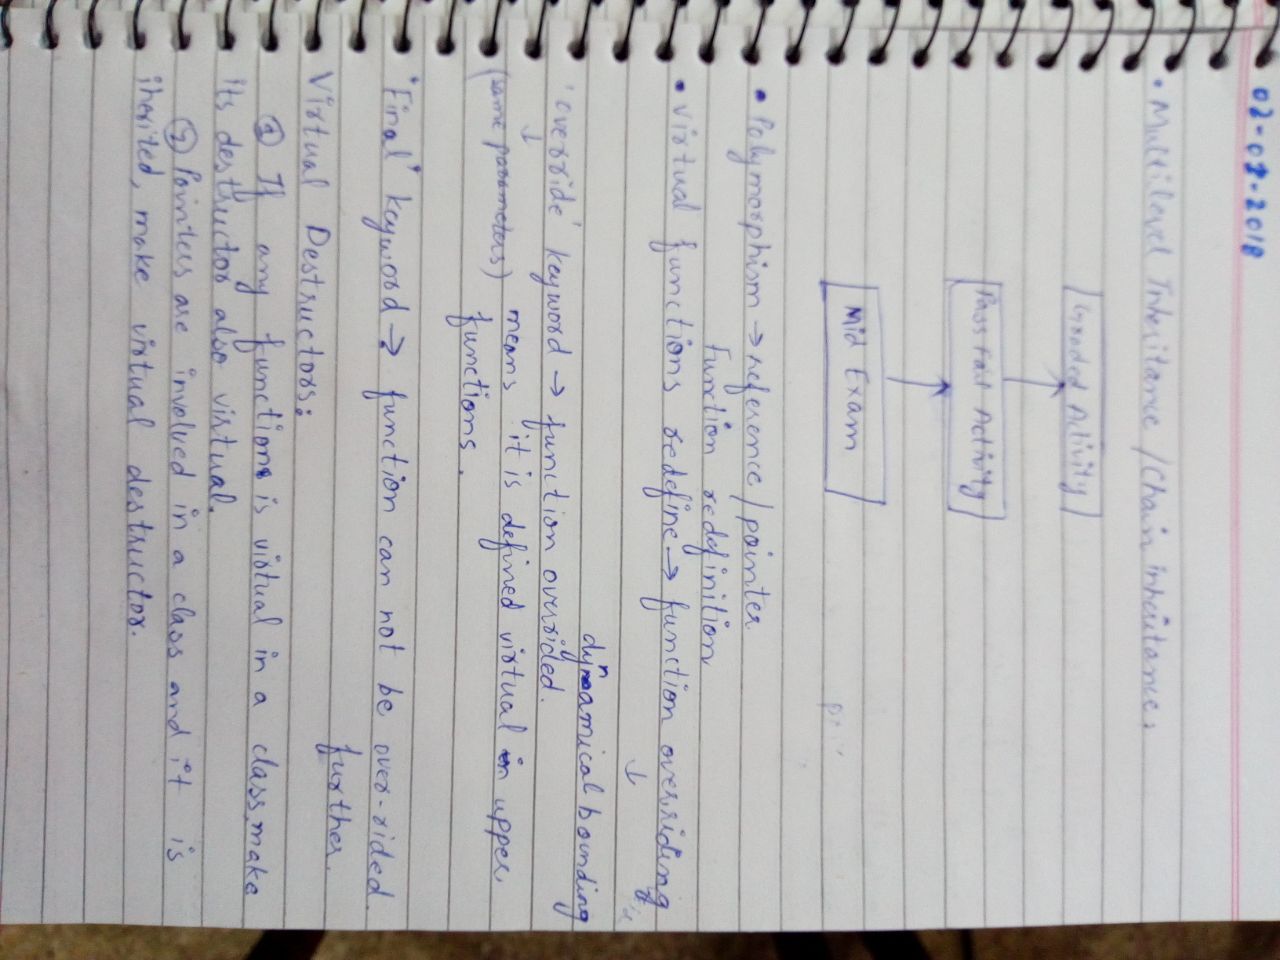 02-02-2018
• Multilevel Inheritance / Chain inheritance,
Graded Activity
Pass Fail Activity
Mid Exam
• Polymorphism → reference / pointer.
Function redefinition
• Virtual functions redefine → function overriding
↓
dynamical bounding
'override' keyword → function overrided.
↓
(same parameters) means it is defined virtual in upper
functions.
"Final" keyword → function can not be over-rided
further.
Virtual Destructors:
① If any function is virtual in a class, make
its destructor also virtual.
② Pointers are involved in a class and it is
iherited, make virtual destructor.